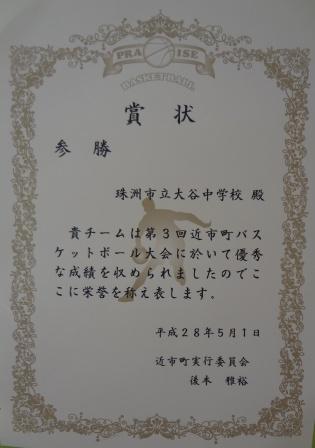 PRAISE
BASKETBALL
賞状
参勝
珠洲市立大谷中学校 殿
貴チームは第3回近市町バス
ケットボール大会に於いて優秀
な成績を収められましたのでこ
こに栄誉を称え表します。
平成28年5月1日
近市町実行委員会
後本 雅裕